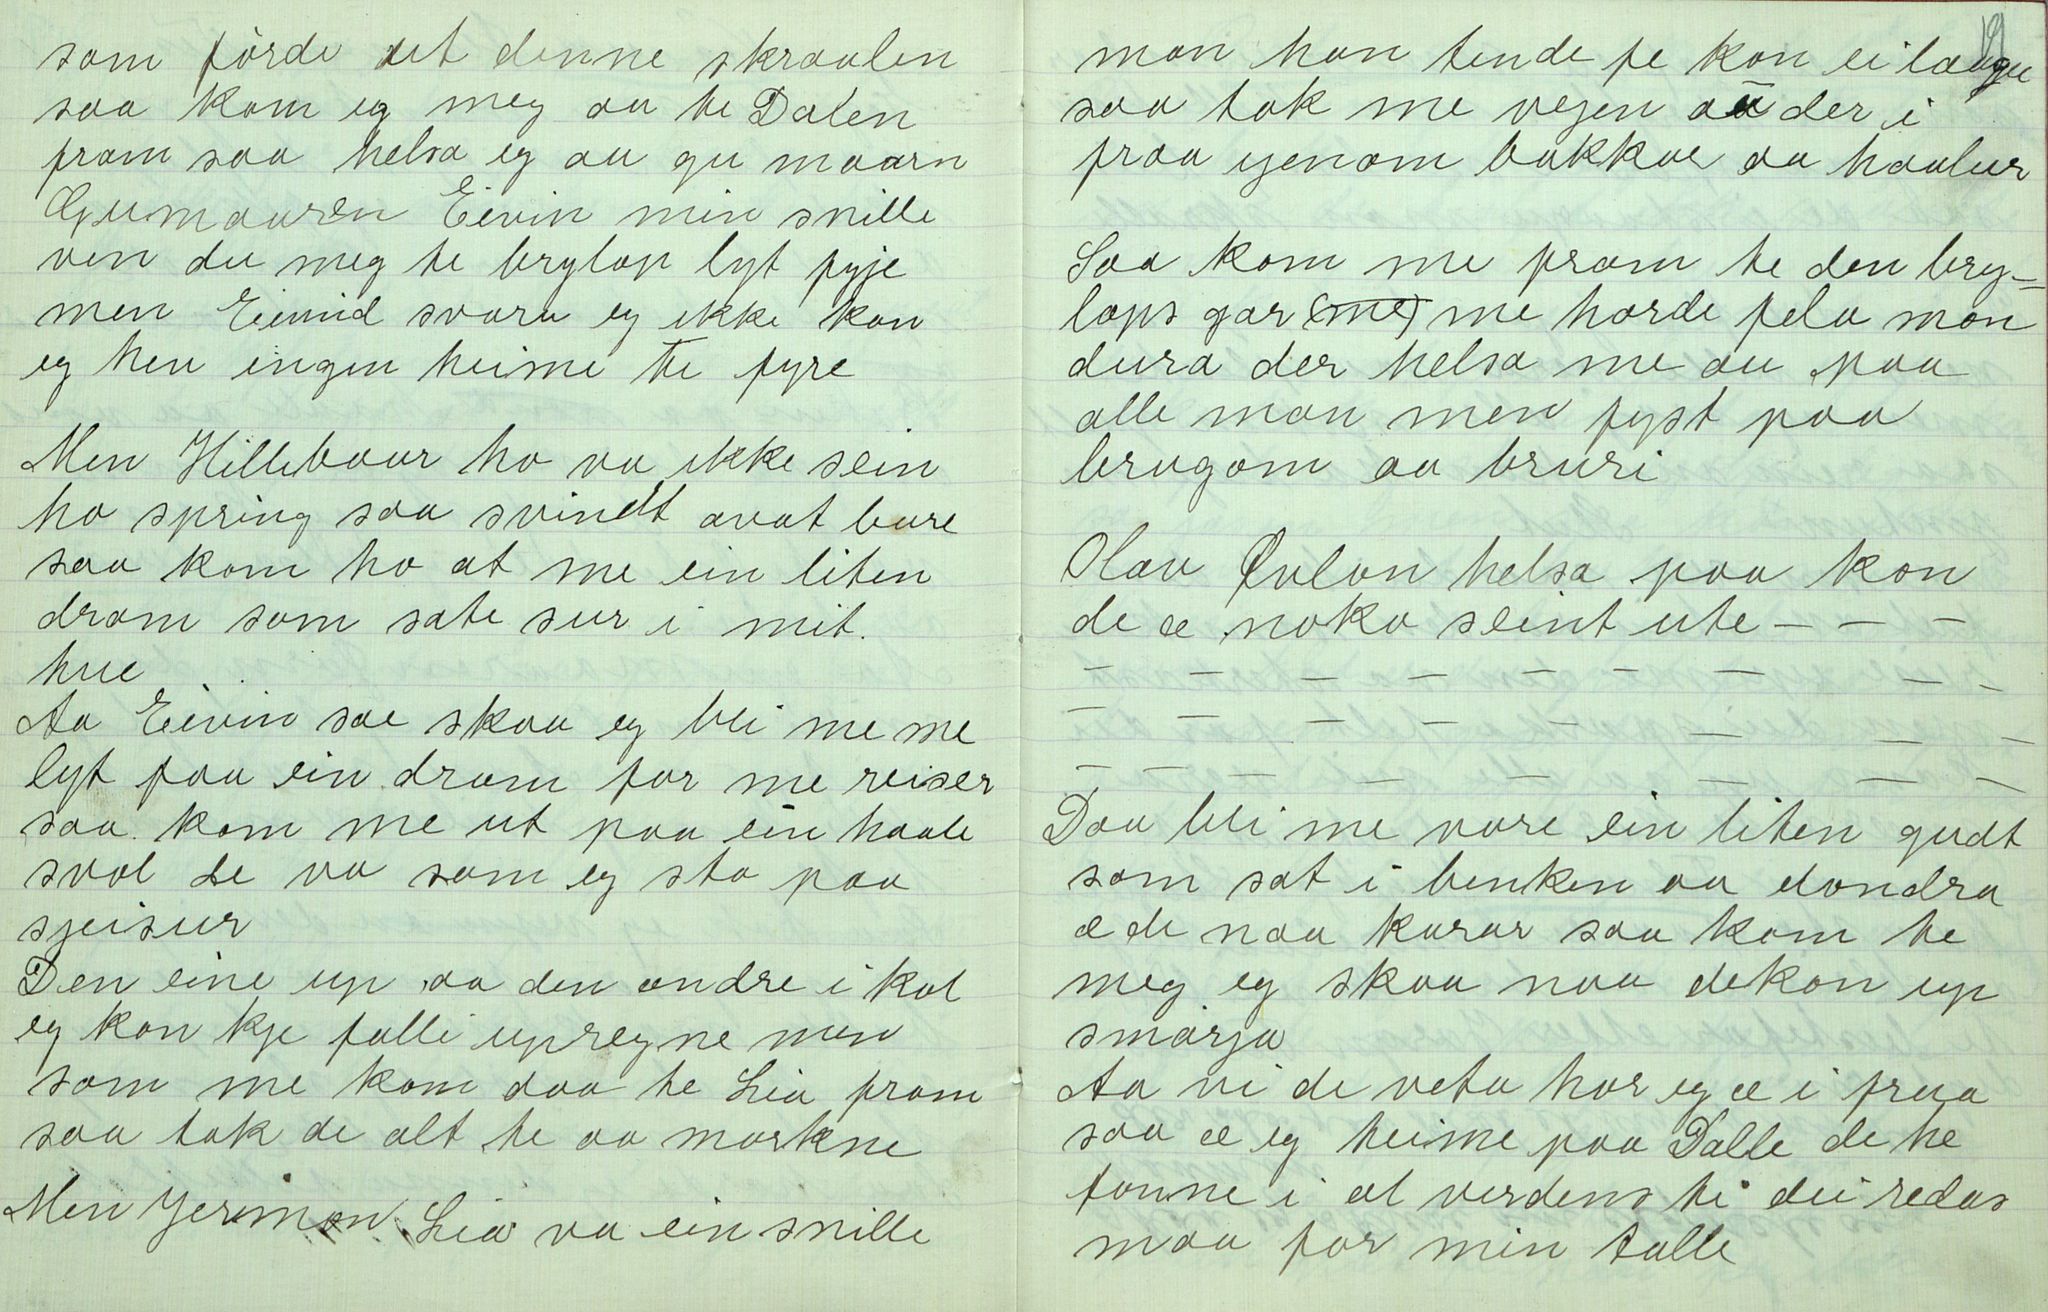 som förde et denne skraalen
saa kom eg meg aa te Dalen
fram saa helsa eg aa gu maarn
Gumaaren Eivin min snille
ven du meg te brylop lyt fyje
men Eivind svara eg ikke kan
eg hev ingen heime te fyre
Men Hillebaar ho va ikke sein
ho spring saa svindt avat bure
saa kom ho at me ein liten
dram som sate sur i mit.
hue
Aa Eivin sae skaa eg bli me me
lyt faa ein dram for me reiser
saa kom me ut paa ein haale
svol de va som eg sto paa
sjeisur
Den eine up aa den andre i kol
eg kan kje falli upregne men
som me kom daa te Lia fram
saa tok de alt te aa morkne
Men Jermon Lia va ein snille
19
man han tende fe kan ei laugu
saa tok me vegen aa der i
fraa gjenom bakkar aa haalur
Saa kom me fram te den bry-
lops gar (me) me horde fela mon
dura der helsa me au paa
alle man men fyst paa
brugom aa bruri
Olav Qvlan helsa paa kan
de æ noko seint ute — — —
— — — — — — — —
— — — — — — —
— — — — — — — — —
Daa bli me vare ein liten gudt
som sat i benken aa dondra
æ de naa karar saa kom te
meg eg skaa naa dekan up
smörja
Aa vi de veta hor eg æ i fraa
saa æ eg heime paa Dalle de he
fonne i al verdens ti dei redas
maa for min talle